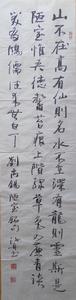 山不在高有仙則名水不在深有龍則靈斯是
陋室惟吾德馨苔痕上階綠草色入簾青談
笑有鴻儒往来無白丁 劉禹錫陋室銘